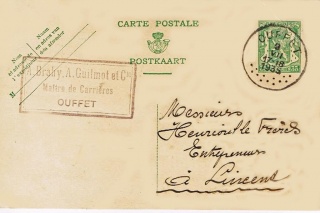 CARTE POSTALE
POSTKAART
Nom
et adresse de
l'expéditeur
Naam
en adres van
den afzender
M
OUFFET
9
12-13
1935
A. Guilmot et Cie
Maîtres de Carrières
OUFFET
Messieurs
Henrioulle Frères
Entrepreneurs
à Linc